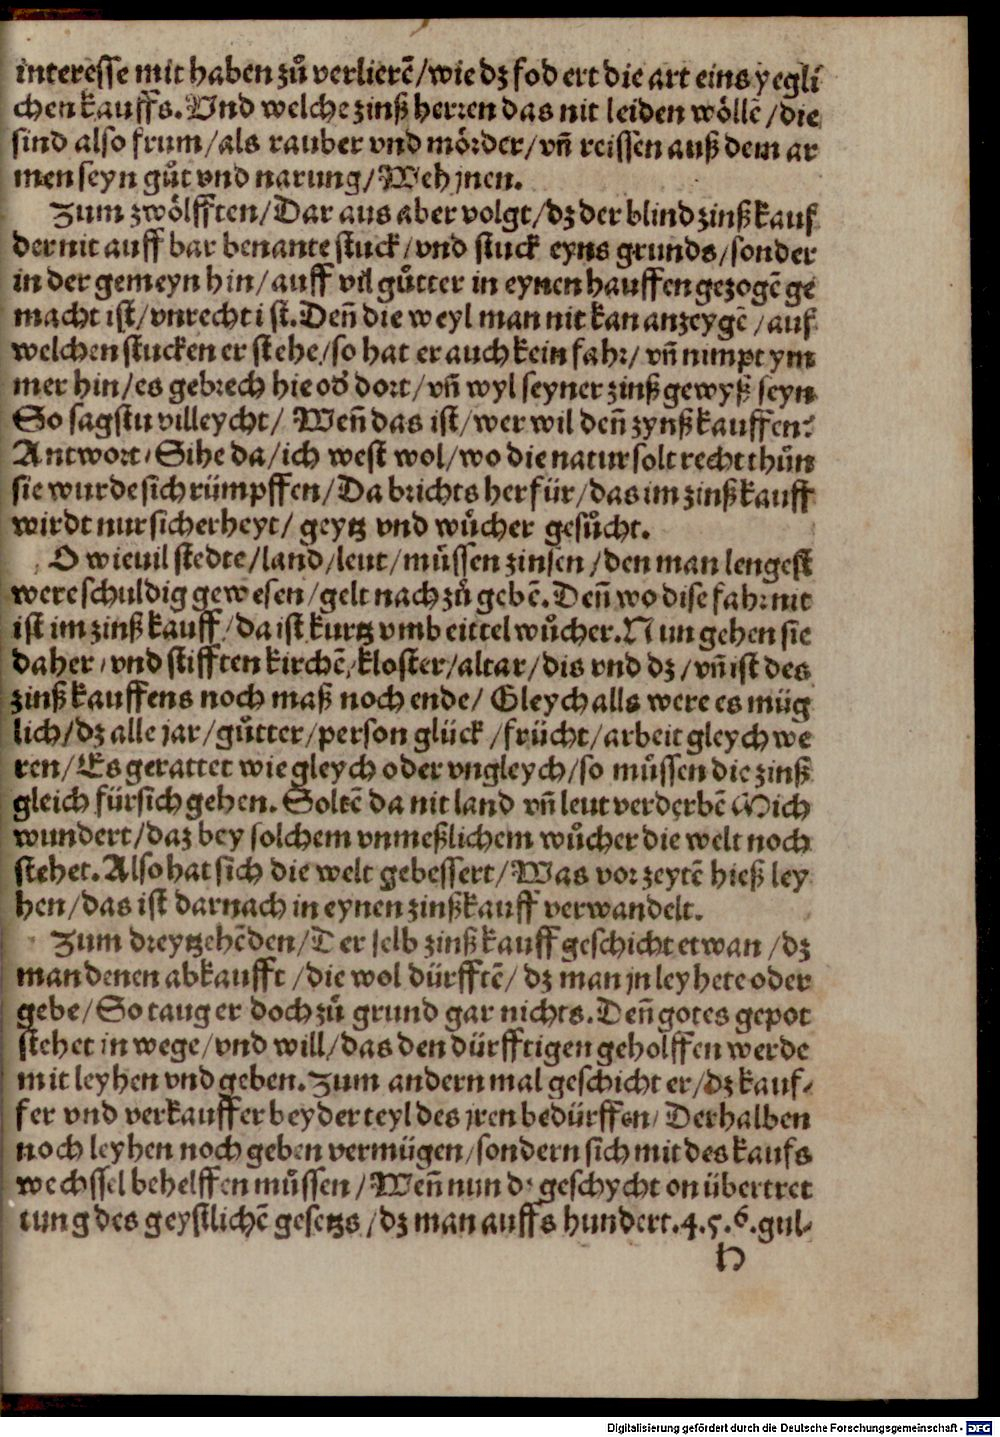 interesse mit haben zů verlierē/wie dz fodert die art eins yegli
chen kauffs. Vnd welche zinß herren das nit leiden wöllē/die
sind also frum/als rauber vnd mörder/vñ reissen auß dem ar
men seyn gůt vnd narung/Weh jnen.
Zum zwölfften/Dar aus aber volgt/dz der blind zinß kauf
der nit auff bar benante stuck/vnd stuck eyns grunds/sonder
in der gemeyn hin/auff vil gůtter in eynen hauffen gezogē ge
macht ist/vnrecht ist. Deñ die weyl man nit kan anzeygē/auf
welchen stucken er stehe/so hat er auch kein fahr/vñ nimpt ym
mer hin/es gebrech hie od' dort/vñ wyl seyner zinß gewyß seyn
So sagstu villeycht/ Weñ das ist/wer wil deñ zynß kauffen?
Antwort/Sihe da/ich west wol/wo die natur solt recht thůn
sie wurde sich rümpffen/Da brichts herfür/das im zinß kauff
wirdt nur sicherheyt/ geytz vnd wůcher gesůcht.
O wieuil stedte/land/leut/můssen zinsen/den man lengest
were schuldig gewesen/gelt nach zů gebē. Deñ wo dise fahr nit
ist im zinß kauff/da ist kurtz vmb eittel wůcher. Nun gehen sie
daher/vnd stifften kirchē/kloster/altar/dis vnd dz/vñ ist des
zinß kauffens noch maß noch ende/ Gleych alls were es müg
lich/dz alle jar/gůtter/person glück/frücht/arbeit gleych we
ren/Es gerattet wie gleych oder vngleych/so můssen die zinß
gleich fürsich gehen. Soltē da nit land vñ leut verderbē Mich
wundert/daz bey solchem vnmeßlichem wůcher die welt noch
stehet. Also hat sich die welt gebessert/Was vor zeytē hieß ley
hen/das ist darnach in eynen zinßkauff verwandelt.
Zum dreytzehēden/Der selb zinß kauff geschicht etwan/dz
man denen abkaufft/die wol dürfftē/ dz man jn leyhete oder
gebe/So taug er doch zů grund gar nichts. Deñ gotes gepot
stehet in wege/vnd will/das den dürfftigen geholffen werde
mit leyhen vnd geben. Zum andern mal geschicht er/dz kauf-
fer vnd verkauffer beyder teyl des jren bedürffen/ Derhalben
noch leyhen noch geben vermügen/sondern sich mit des kaufs
wechssel behelffen můssen/Weñ nun d' geschycht on übertret
tung des geystlichē gesetzs/dz man auffs hundert. 4. 5. 6. gul-
H
Digitalisierung gefördert durch die Deutsche Forschungsgemeinschaft - DFG